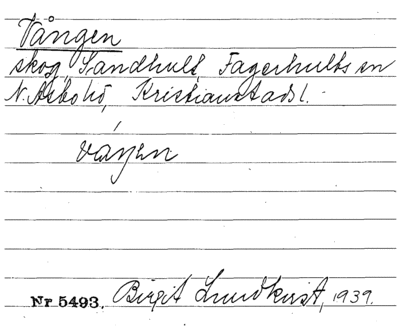 Vången
skog, Sandhult, Fagerhults sn
N. Åsbo hd, Kristianstads l.
våŋen
Nr 5493. Birgit Lundkvist, 1939.